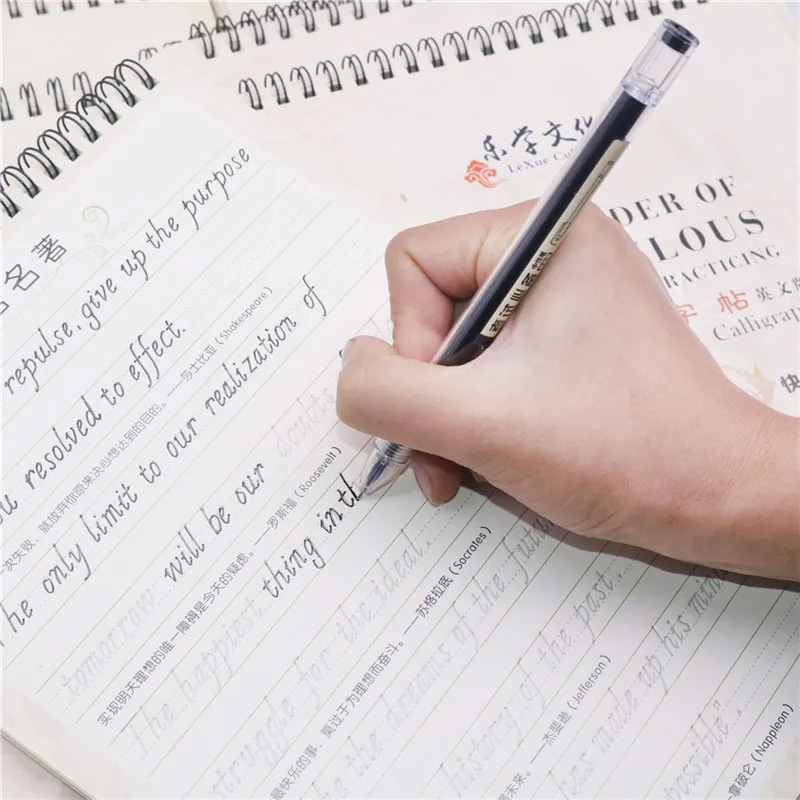 名著
repulse, give up the purpose
resolved to effect.
一次失败，就放弃你原来决心想达到的目的。——莎士比亚（Shakespeare）
he only limit to our realization of
tomorrow will be our doubts
实现明天理想的唯一障碍是今天的疑虑。——罗斯福（Roosevelt）
The happiest thing in th
struggle for the ideal.
最快乐的事，莫过于为理想而奋斗。——苏格拉底（Socrates）
the dreams of the future
history of the past.
未来。——杰斐逊（Jefferson）
has made up his mind
possible"
拿破仑（Napoleon）
乐学文化
LeXue Cul
DER OF
LOUS
RACTICING
字帖 英文版
Calligrap
快
考试必备 中性笔